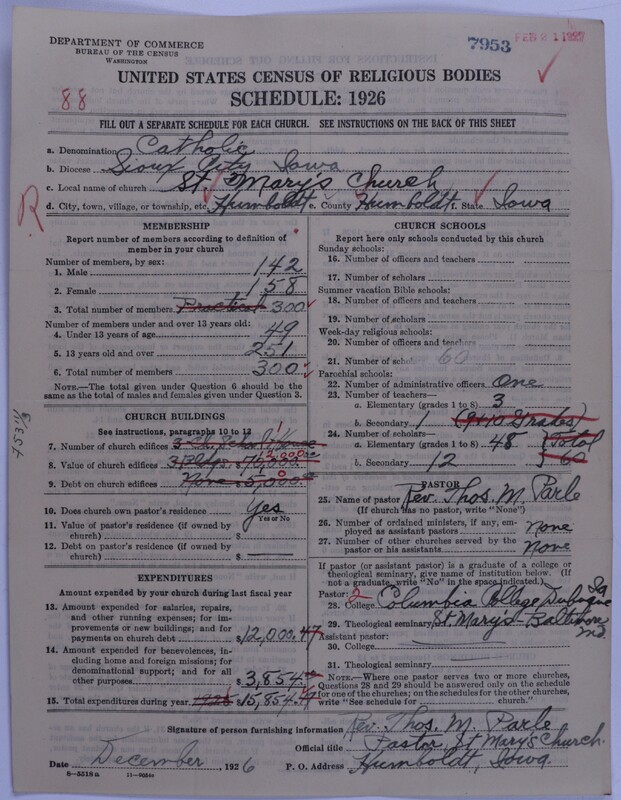 DEPARTMENT OF COMMERCE
BUREAU OF THE CENSUS
WASHINGTON
7953
FEB 21 1927
UNITED STATES CENSUS OF RELIGIOUS BODIES
88
SCHEDULE: 1926
FILL OUT A SEPARATE SCHEDULE FOR EACH CHURCH. SEE INSTRUCTIONS ON THE BACK OF THIS SHEET
a. Denomination Catholic
b. Diocese Sioux City Iowa
c. Local name of church St. Mary's Church
d. City, town, village, or township, etc. Humboldt e. County Humboldt f. State Iowa
R
MEMBERSHIP
Report number of members according to definition of
member in your church
Number of members, by sex:
1. Male 142
2. Female 158
3. Total number of members Practical 300
Number of members under and over 13 years old:
4. Under 13 years of age 49
5. 13 years old and over 251
6. Total number of members 300
NOTE.—The total given under Question 6 should be the
same as the total of males and females given under Question 3.
CHURCH BUILDINGS
See instructions, paragraphs 10 to 12
7. Number of church edifices 1
8. Value of church edifices
9. Debt on church edifices
10. Does church own pastor's residence Yes
Yes or No
11. Value of pastor's residence (if owned by
church) $
12. Debt on pastor's residence (if owned by
church) $
EXPENDITURES
Amount expended by your church during last fiscal year
13. Amount expended for salaries, repairs,
and other running expenses; for im-
provements or new buildings; and for
payments on church debt $12,000.47
14. Amount expended for benevolences, in-
cluding home and foreign missions; for
denominational support; and for all
other purposes $3,854.
15. Total expenditures during year 1926 $15,854.47
CHURCH SCHOOLS
Report here only schools conducted by this church
Sunday schools:
16. Number of officers and teachers
17. Number of scholars
Summer vacation Bible schools:
18. Number of officers and teachers
19. Number of scholars
Week-day religious schools:
20. Number of officers and teachers
21. Number of scholars 60
Parochial schools:
22. Number of administrative officers One
23. Number of teachers—
a. Elementary (grades 1 to 8) 3
b. Secondary 1 (9+10 Grades)
24. Number of scholars—
a. Elementary (grades 1 to 8) 48 Total
b. Secondary 12 60
PASTOR
25. Name of pastor Rev. Thos. M. Parle
(If church has no pastor, write "None")
26. Number of ordained ministers, if any, em-
ployed as assistant pastors none
27. Number of other churches served by the
pastor or his assistants None
If pastor (or assistant pastor) is a graduate of a college or
theological seminary, give name of institution below. (If
not a graduate, write "No" in the space indicated.)
Pastor: 2
28. College Columbia College Dubuque Ia
29. Theological seminary St. Mary's - Baltimore Md.
Assistant pastor:
30. College
31. Theological seminary
NOTE.—Where one pastor serves two or more churches,
Questions 28 and 29 should be answered only on the schedule
for one of the churches; on the schedules for the other churches,
write "See schedule for church."
Signature of person furnishing information Rev. Thos. M. Parle
Official title Pastor, St Mary's Church.
Date December, 1926 P. O. Address Humboldt, Iowa
8—5518 a 11—9054